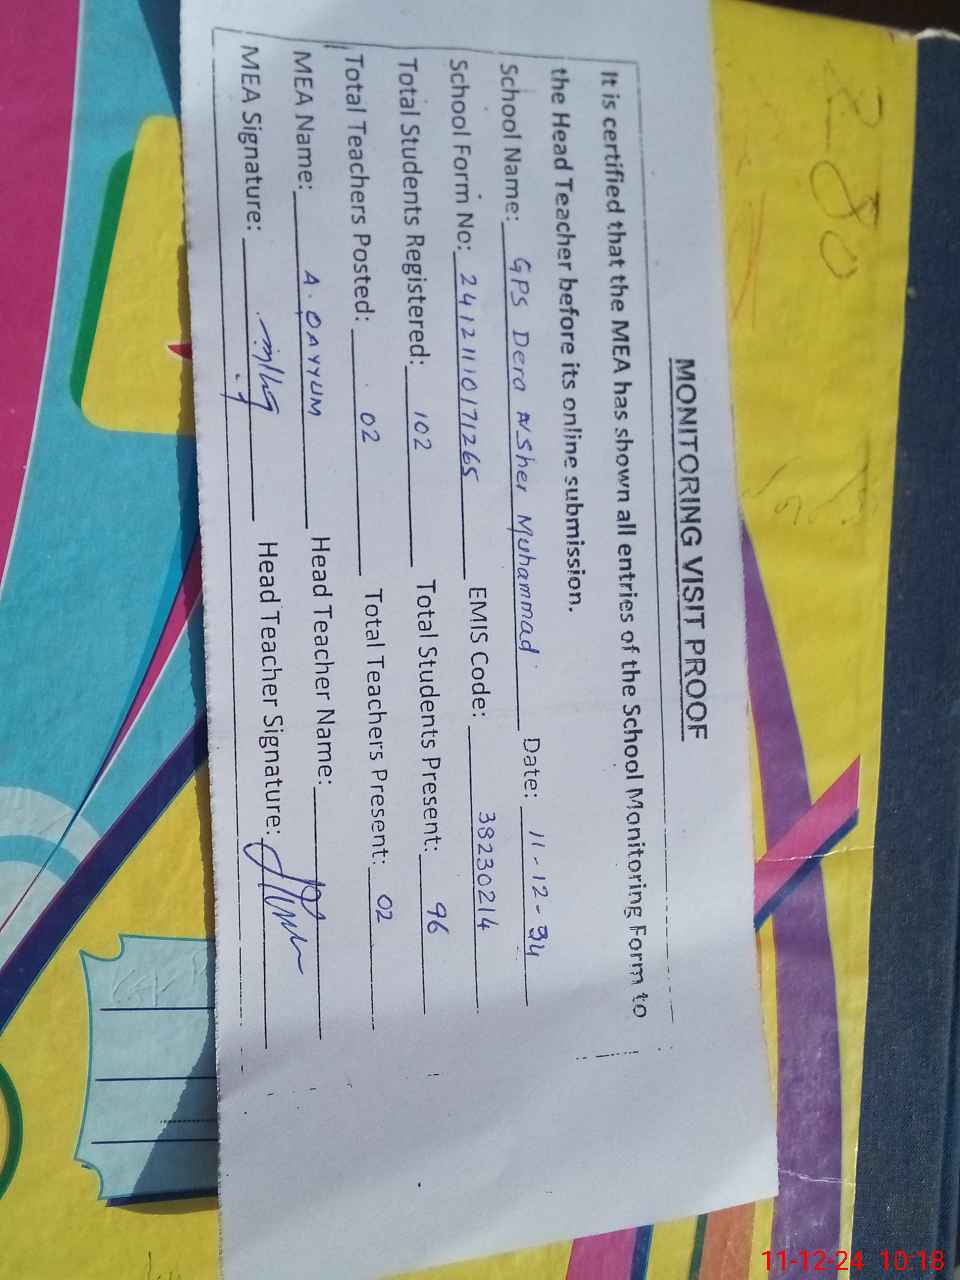 MONITORING VISIT PROOF
It is certified that the MEA has shown all entries of the School Monitoring Form to
the Head Teacher before its online submission.
School Name: GPS Dera Sher Muhammad Date: 11-12-34
School Form No: 24121110171265 EMIS Code: 38230214
Total Students Registered: 102 Total Students Present: 96
Total Teachers Posted: 02 Total Teachers Present: 02
MEA Name: A. QAYYUM Head Teacher Name:
MEA Signature: Head Teacher Signature:
11-12-24 10:18